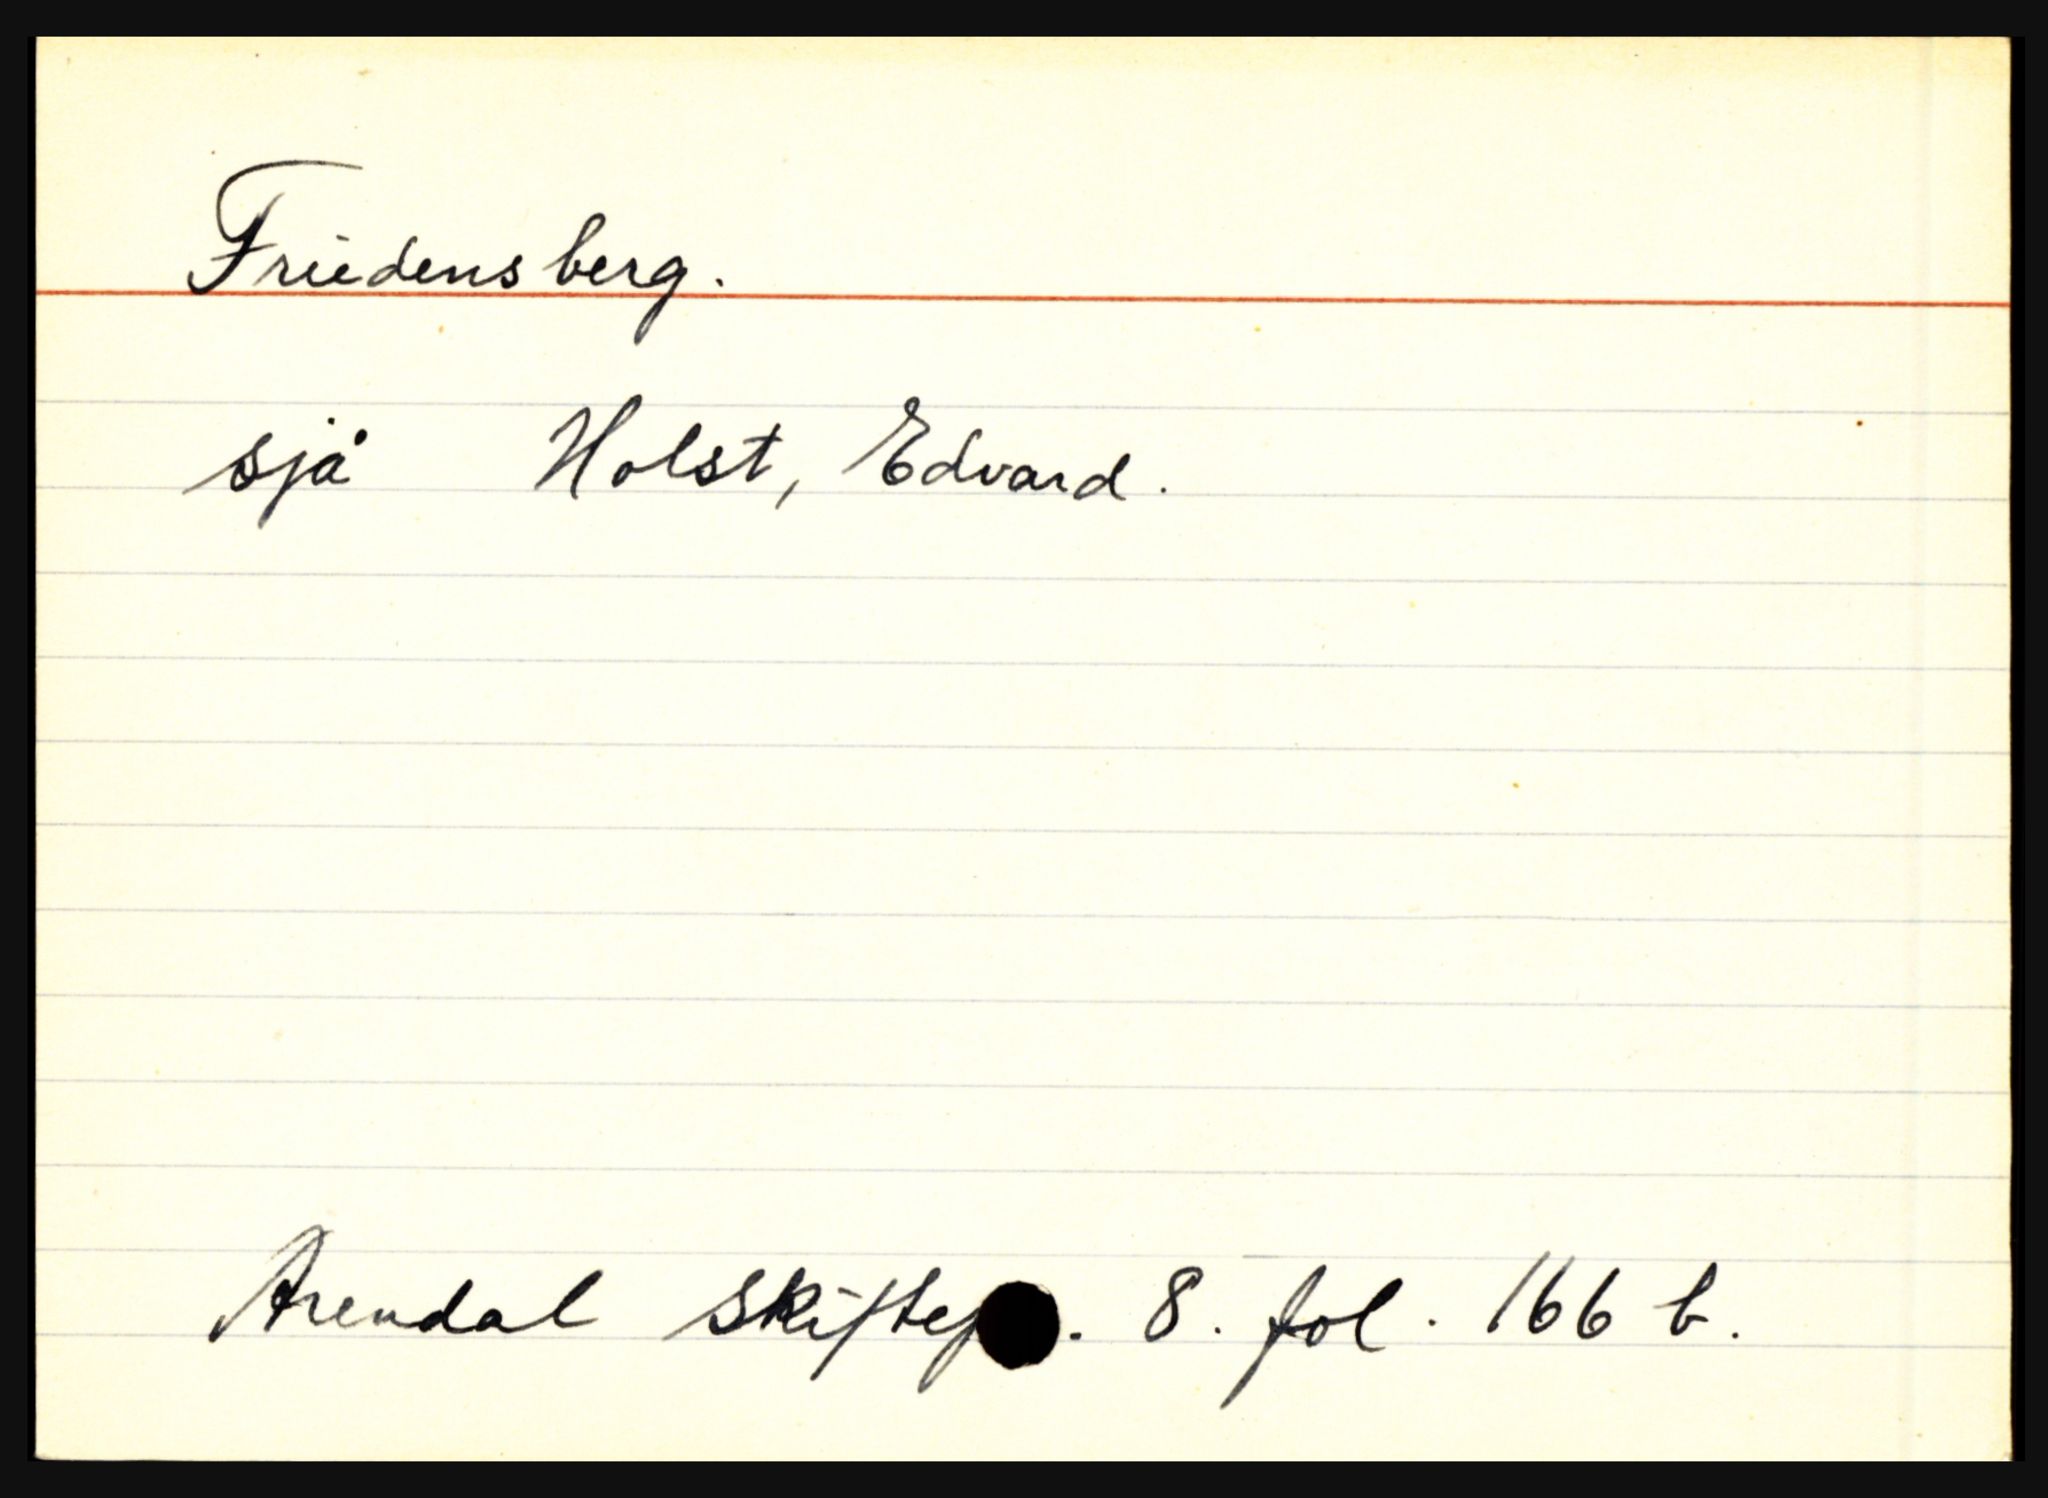 Friedensberg.
sjå Holst, Edvard.
Arendal 8. fol. 166 b.